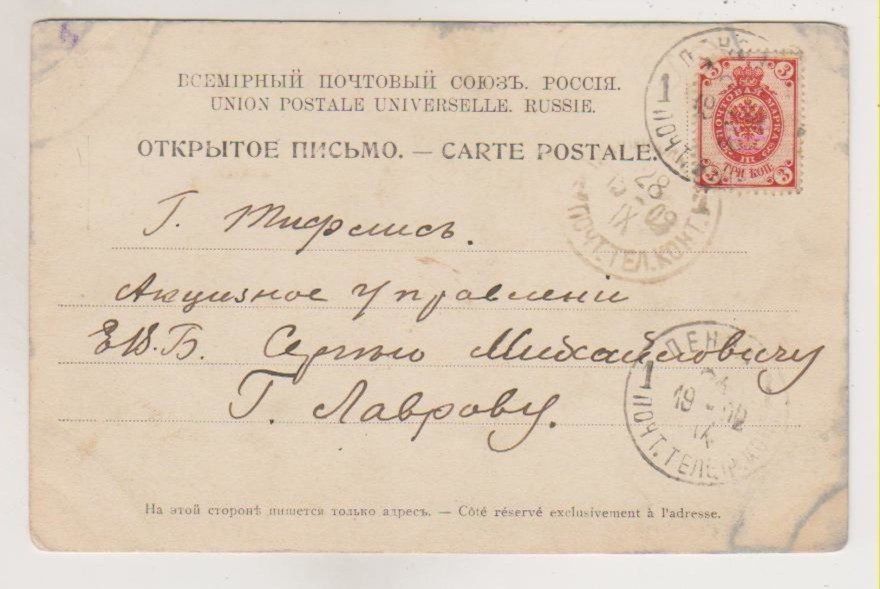 ВСЕМІРНЫЙ ПОЧТОВЫЙ СОЮЗЪ. РОССІЯ.
UNION POSTALE UNIVERSELLE. RUSSIE.
ОТКРЫТОЕ ПИСЬМО. — CARTE POSTALE.
3 3
ПОЧТОВАЯ МАРКА
ТРИ КОП.
3 3
1
28
IX 09
ПОЧТ.ТЕЛ.КОНТ.
Г. Тифлисъ.
Акцизное Управленіе
Е.В.Б. Сергѣю Михайловичу
Г. Лаврову.
1
19
ПОЧТ.ТЕЛЕГР.
На этой сторонѣ пишется только адресъ. — Côté réservé exclusivement à l'adresse.